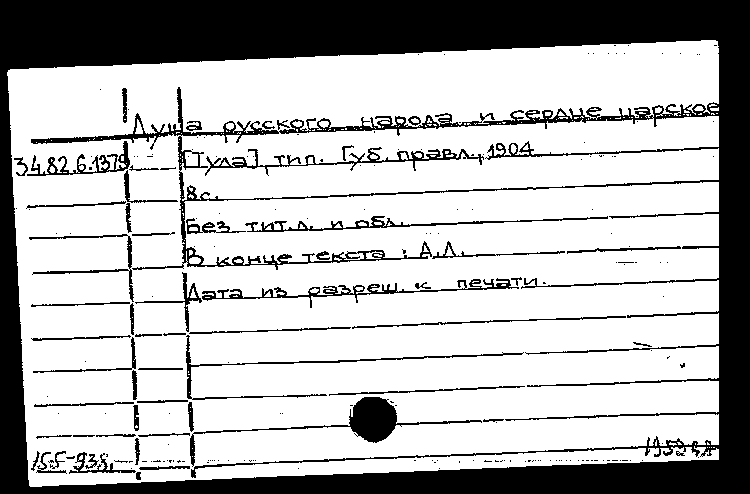 Душа русского народа и сердце царское
34.82.6.1379. [Тула], тип. Губ. правл., 1904
8с.
Без тит.л. и обл.
В конце текста : А.Л.
Дата из разреш. к печати.
155-938.